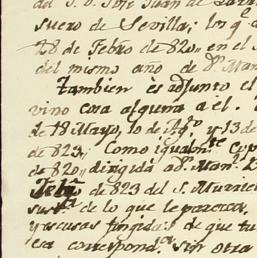 del S. D. Jose Juan de
suero de Sevilla; en q.e
28 de Febro de 820,, en el
del mismo año de D.n Man
tambien es adjunto el
vino cosa alguna a el.
de 18 Mayo, 10 de Ag.o y 13 de
de 823,, Como igualm.te Cop
de 820,, dirigida a D.n Man.l
Feb.o de 823 del S.
de lo que le paresca.
y escusas fingidas de que
esa correspond.a sin otra